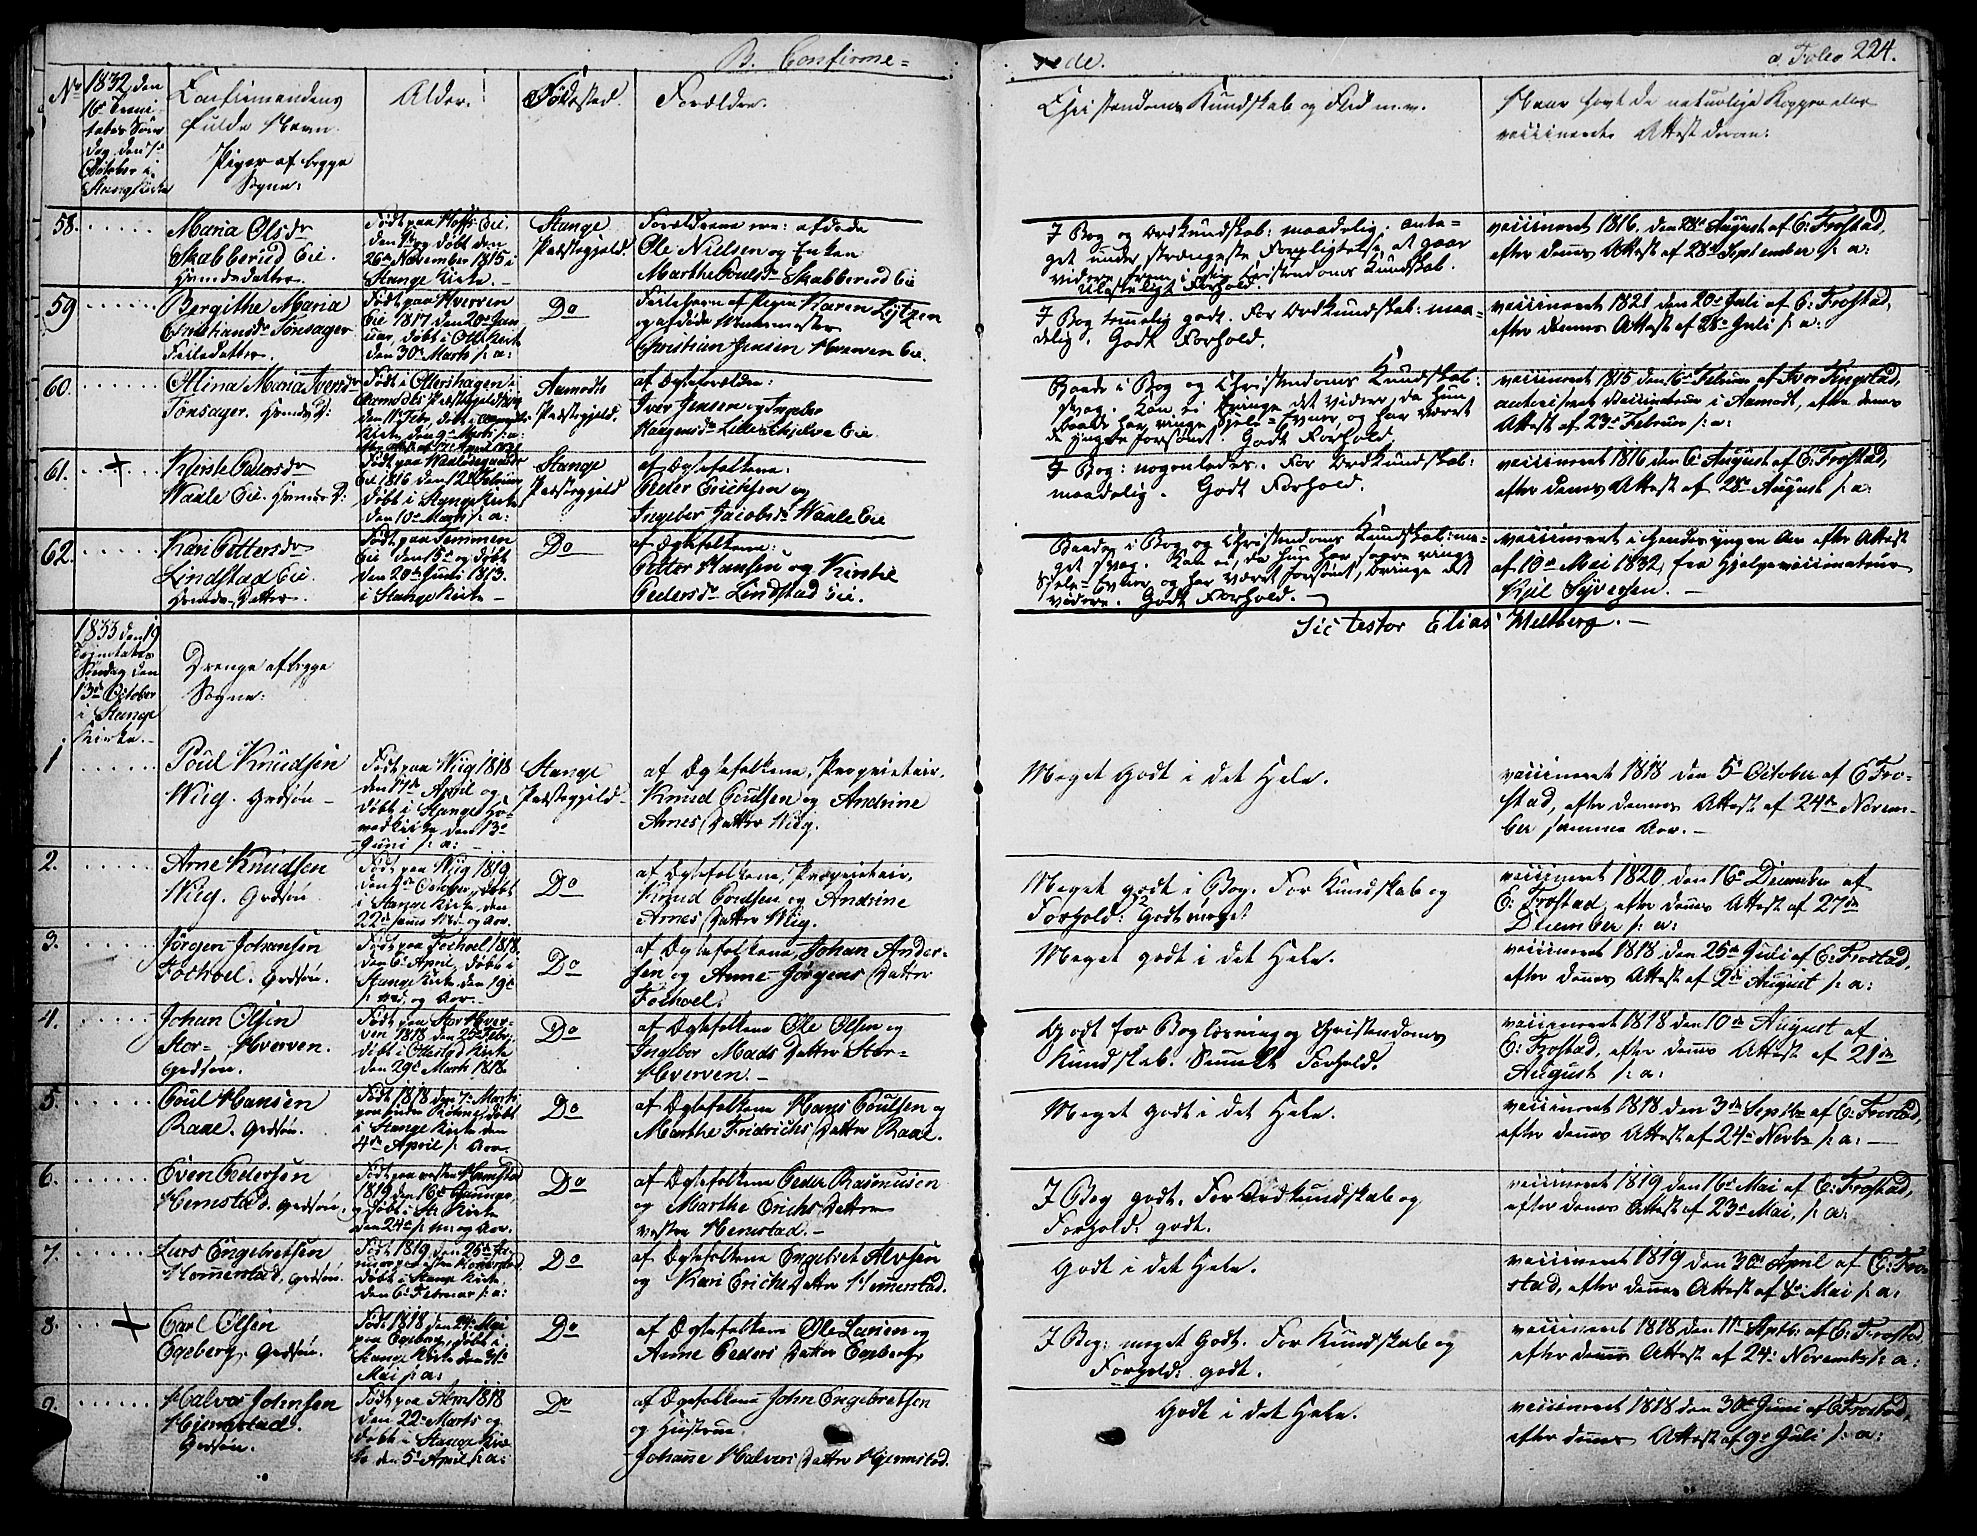 B. Confirme=
rede.
a Folio 224.
No
1832, den
16de Trini
tatis Søn
dag den 7de
October i
Stange Kirke
Confirmandens
fulde Navn.
Piger af begge
Sogne:
Alder.
Fødested.
Forældre.
Christendoms Kundskab og Flid m.v.
Naar havt de naturlige Kopper eller
vaccineret Attest derom:
58.
Maria Olsdr
Skabberud Eie.
Huusmdsdatter.
Født paa Hoffs Eie
den 9de og døbt den
26de November 1815 i
Stange Kirke. –
Stange
Præstegjeld.
Forældrene ere: afdøde
Ole Nielsen og Enken
Marthe Poulsdr Skabberud Eie
I Bog og Ordkundskab: maadelig; anta=
get under strængeste Forpligtelse, at gaae
videre frem i sin Christendoms Kundskab.
Ulasteligt Forhold.
vaccineret 1816, den 28de August af C: Frostad,
efter dennes Attest af 28de September s: a:
59
Bergithe Maria
Christiansdr Tønsager
Født paa Hverven
Eie 1817 den 20de Jan
uar, døbt i Kirke
den 30te Marts s: a:
Do
af Pigen Karen
og afdøde
Christian Jensen Hverven Eie.
I Bog temmelig godt. For Ordkundskab: maa=
delig. Godt Forhold.
vaccineret 1821 den 20de Juli af C: Frostad,
efter dennes Attest af 28de Juli s: a:
60.
Olina Maria Iversdr
Tønsager. Huusmds D:
Født i Ottershagen i
Aamodts Præstegjeld
Aamodts
Præstegjeld.
af Ægteforældre:
Iver Jensen og Ingebor
Haagensdr Lilleskjelve Eie
Baade i Bog og Christendoms Kundskab:
svag. Kan ei bringe det videre, da hun
baade har ringe Sjels=Evner, og har været
de yngre forsømt. Godt Forhold.
vaccineret 1815 den 16de Februar af Iver Ringstad,
autoriseret Vaccinateur i Aamodt, efter dennes
Attest af 23de Februar s: a:
61.
+
Kjersti Pedersdr
Waale Eie. Huusmds D:
Født paa
Eie 1816 den 12te Februar,
døbt i Stange Kirke
den 10de Marts s: a:
Stange
Præstegjeld
af Ægtefolkene:
Peder Erichsen og
Ingebor Jacobsdr Waale Eie
I Bog: nogenledes. For Ordkundskab:
maadelig. Godt Forhold.
vaccineret 1816 den 6te August af C: Frostad,
efter dennes Attest af 28de August s: a:
62.
Kari Pettersdr
Lindstad Eie.
Huusmds Datter.
Født paa Temmen
Eie den 15de og døbt
den 20de Juni 1813.
i Stange Kirke –
Do
af Ægtefolkene:
Petter Hansen og Kirstie
Pedersdr Lindstad Eie.
Baade i Bog og Christendoms Kundskab: me=
get svag. Kan ei, da hun har saare ringe
Sjels=Evner og har været forsømt, bringe det
videre. Godt Forhold. –
vaccineret i hendes yngre Aar efter Attest
af 19de Mai 1832, fra Hjelpevaccinateur
Kjel Syversen. –
Sic testor Elias Meltberg. –
1833 den 19
Trinitatis
Søndag den
13de October
i Stange
Kirke. –
Drenge af begge
Sogne:
1
Poul Knudsen
Wiig. Grdsøn –
Født paa Wiig 1818
den 17de April og
døbt i Stange Ho=
vedkirke den 13de
Juni s: a: –
Stange
Præstegjeld –
af Ægtefolkene, Proprietair.
Knud Poulsen og Andrine
Arnes Datter Wiig.
Meget Godt i det Hele.
vaccineret 1818 den 5te October af C Fro=
stad, efter dennes Attest af 24de Novem=
ber samme Aar. –
2.
Arne Knudsen
Wiig. Grdsøn.
Født paa Wiig 1819
October, døbt
i Stange Kirke, den
22de og Aar.
Do
af Ægtefolkene, Proprietair,
Knud Poulsen og Andrine
Arnes Datter Wiig.
Meget godt i Bog. For Kundskab og
Forhold: Godt meget
vaccineret 1820. den 16de December af
C: Frostad, efter dennes Attest af 27de
December s: a:
3.
Jørgen Johansen
Fochoel. Grdsøn.
Født paa Fochoel 1818.
den 6te April, døbt i
Stange Kirke den 19de
s: Md. og Aar. –
Do
af Ægtefolkene, Johan Ander=
sen og Anne Jørgens Datter
Fochoel.
Meget godt i det Hele.
vaccineret 1818 den 25de Juli af C: Frostad,
efter dennes Attest af 2de August s: a:
4.
Johan Olsen
Stor= Hverven.
Grdsøn.
Født paa Stor Hver=
ven 1818 den 25de Febr.
døbt i Ottestad Kirke
den 29de Marts 1818.
Do
af Ægtefolkene Ole Olsen og
Ingebor Mads Datter Stor=
Hverven. –
Godt for Boglæsning og Christendoms
Kundskab. Samme Forhold.
vaccineret 1818 den 10de August af
C: Frostad, efter dennes Attest af 21de
August s: a:
5.
Poul Hansen
Raae. Grdsøn.
Født 1818 den 7de Marts
paa døbt
i Stange Kirke den
4de April s: Aar.
Do
af Ægtefolkene Hans Poulsen og
Marthe Fridrichs Datter Raae.
Meget Godt i det Hele.
vaccineret 1818 den 3de Septbr af C: Frostad,
efter dennes Attest af 24de Novbr s: a: –
6.
Even Pedersen
Hemstad. Grdsøn.
Født paa vestre Hemstad
1819 den 16de Januar
og døbt i St: Kirke
den 24de s: m: og Aar.
Do
af Ægtefolkene Peder Rasmusen
og Marthe Erichs Datter
vestre Hemstad. –
I Bog godt. For Ordkundskab og
Forhold: godt.
vaccineret 1819 den 16de Mai af C: Frostad,
efter dennes Attest af 23de Mai, s: a:
7.
Lars Engebretsen
Hommerstad, Grdsøn.
Født 1819 den 25de Ja=
nuar
døbt i Stange Kirke
den 6te Februar s: a:
Do
af Ægtefolkene Engebret Alvsen
og Kari Erichs Datter Hommerstad.
Godt i det Hele.
vaccineret 1819 den 30te April af C: Fro=
stad, efter dennes Attest af 8de Mai s: a:
8.
+
Carl Olsen
Egeberg. Grdsøn.
Født 1818 den Mai
paa Egeberg, døbt i
Stange Kirke den 31te
Mai s: a:
Do
af Ægtefolkene Ole Larsen og
Anne Peders Datter Egeberg
I Bog: meget Godt. For Kundskab og
Forhold: godt.
vaccineret 1818 den 11te Septbr: af C: Frostad,
efter dennes Attest af 24de Novembr s: a:
9.
Halvor Johnsen
Hjemstad.
Grdsøn.
Født paa 1818
den 22de Marts og
døbt i Stange Kir=
ke den 5te April s: a:
Do
af Ægtefolkene John Engebretsen
og Hustrue.
Johanne Halvors Datter Hjemstad.
Godt i det Hele.
vaccineret 1818 den 30te Juni af C Frostad,
efter dennes Attest af 9de Juli s: a: